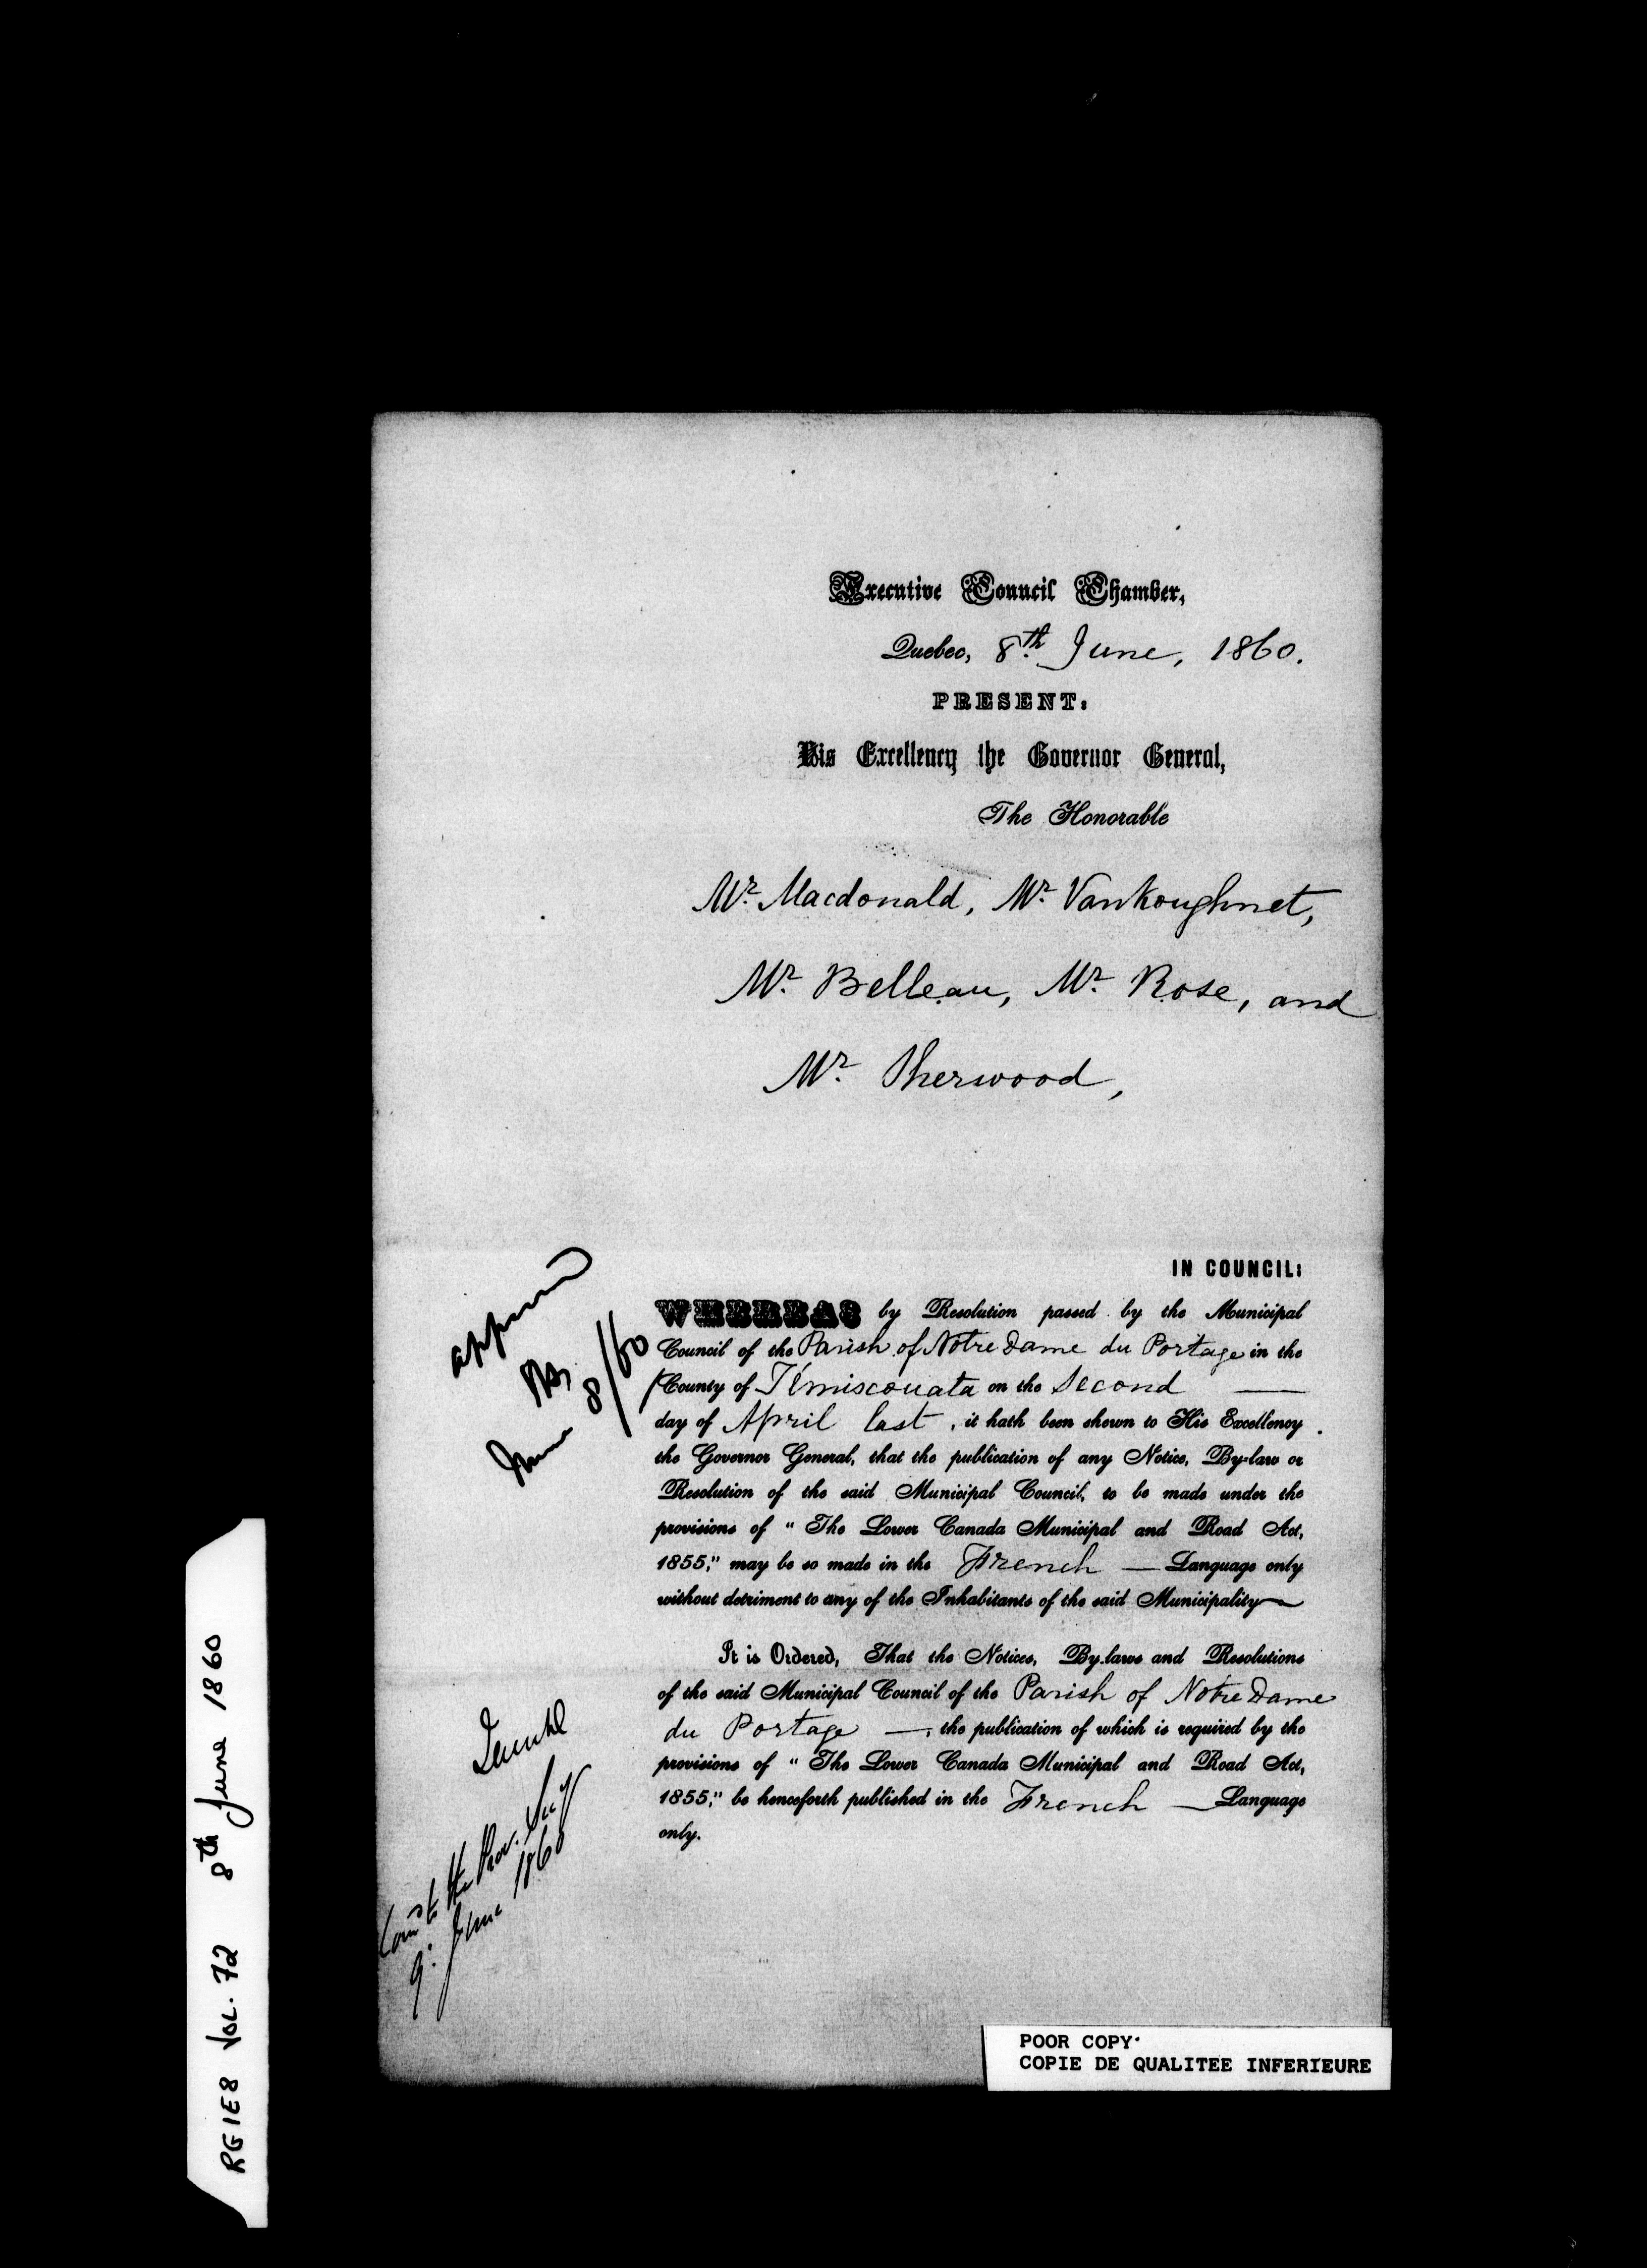 Executive Council Chamber,
Quebec, 8th June, 1860.
PRESENT:
His Excellency the Governor General,
The Honorable
Mr. Macdonald, Mr. VanKoughnet,
Mr. Belleau, Mr. Rose, and
Mr. Sherwood,
IN COUNCIL:
WHEREAS by Resolution passed by the Municipal
Council of the Parish of Notre Dame du Portage in the
County of Témiscouata on the Second
day of April last, it hath been shewn to His Excellency
the Governor General, that the publication of any Notice, By-law or
Resolution of the said Municipal Council, to be made under the
provisions of "The Lower Canada Municipal and Road Act,
1855;" may be so made in the French — Language only
without detriment to any of the Inhabitants of the said Municipality
It is Ordered, That the Notices, By-laws and Resolutions
of the said Municipal Council of the Parish of Notre Dame
du Portage —, the publication of which is required by the
provisions of "The Lower Canada Municipal and Road Act,
1855," be henceforth published in the French — Language
only.
approved
June 8/60
to the Prov. Secy
9. June 1860
RG1E8 VOL. 72 8th June 1860
POOR COPY
COPIE DE QUALITEE INFERIEURE